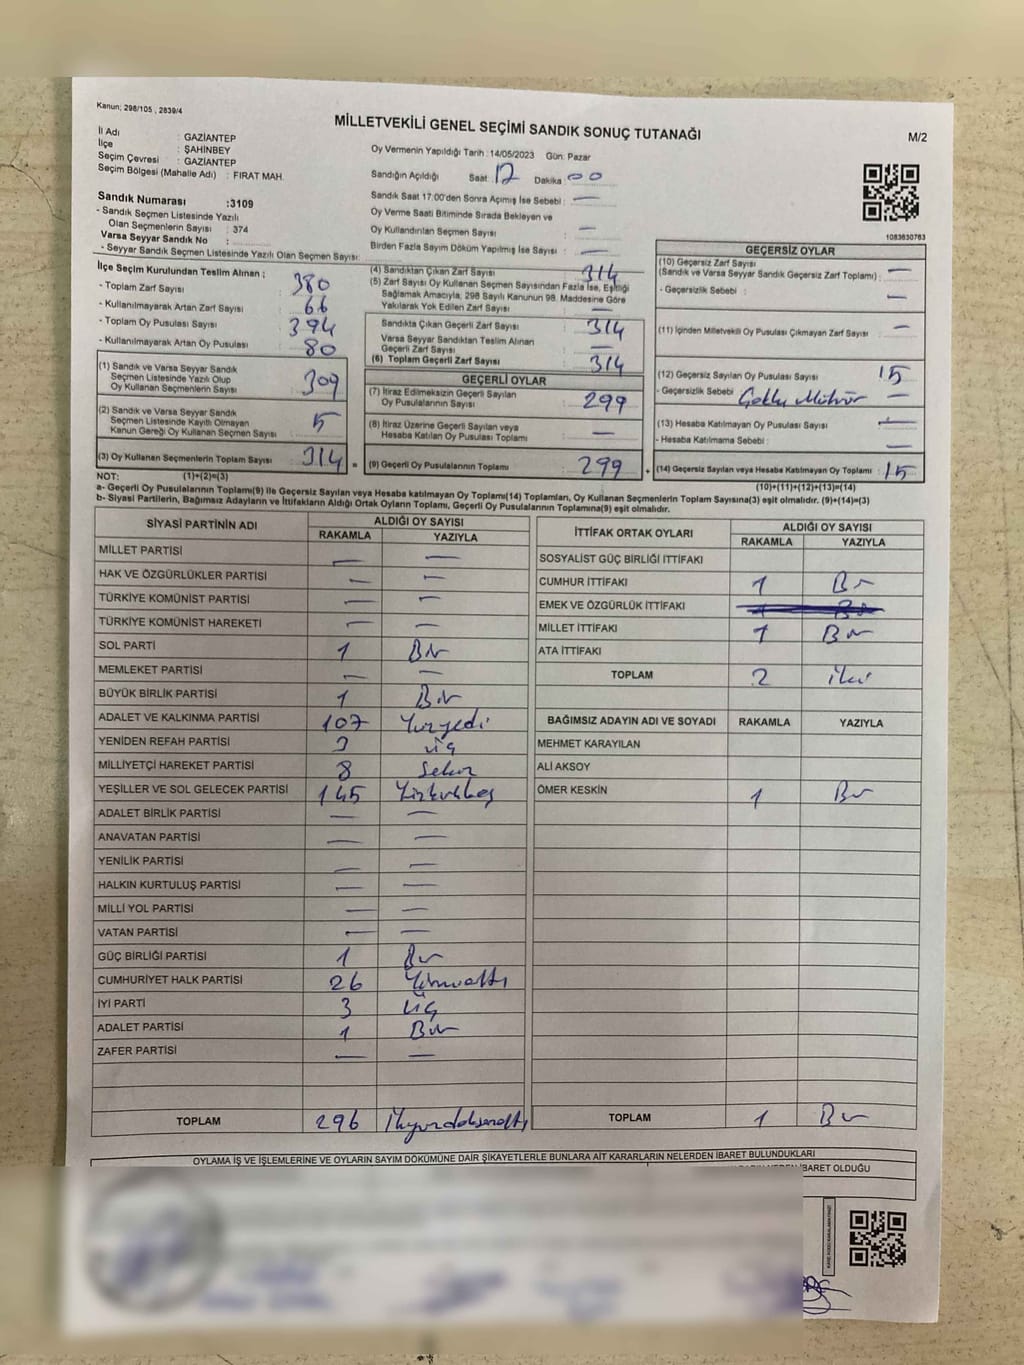 Kanun; 298/105 , 2839/4
MİLLETVEKİLİ GENEL SEÇİMİ SANDIK SONUÇ TUTANAĞI
M/2
İl Adı : GAZİANTEP
İlçe : ŞAHİNBEY
Seçim Çevresi : GAZİANTEP
Seçim Bölgesi (Mahalle Adı) : FIRAT MAH.
Sandık Numarası :3109
- Sandık Seçmen Listesinde Yazılı
Olan Seçmenlerin Sayısı : 374
Varsa Seyyar Sandık No :
- Seyyar Sandık Seçmen Listesinde Yazılı Olan Seçmen Sayısı:
Oy Vermenin Yapıldığı Tarih : 14/05/2023 Gün: Pazar
Sandığın Açıldığı Saat 17 Dakika 00
Sandık Saat 17:00'den Sonra Açımış İse Sebebi : —
Oy Verme Saati Bitiminde Sırada Bekleyen ve
Oy Kullandırılan Seçmen Sayısı : —
Birden Fazla Sayım Döküm Yapılmış İse Sayısı : —
1083630763
İlçe Seçim Kurulundan Teslim Alınan ;
- Toplam Zarf Sayısı : 380
- Kullanılmayarak Artan Zarf Sayısı : 66
- Toplam Oy Pusulası Sayısı : 394
- Kullanılmayarak Artan Oy Pusulası : 80
(1) Sandık ve Varsa Seyyar Sandık
Seçmen Listesinde Yazılı Olup
Oy Kullanan Seçmenlerin Sayısı : 309
(2) Sandık ve Varsa Seyyar Sandık
Seçmen Listesinde Kayıtlı Olmayan
Kanun Gereği Oy Kullanan Seçmen Sayısı : 5
(3) Oy Kullanan Seçmenlerin Toplam Sayısı : 314 =
(4) Sandıktan Çıkan Zarf Sayısı : 314
(5) Zarf Sayısı Oy Kullanan Seçmen Sayısından Fazla İse, Eşitliği
Sağlamak Amacıyla, 298 Sayılı Kanunun 98. Maddesine Göre
Yakılarak Yok Edilen Zarf Sayısı : —
Sandıkta Çıkan Geçerli Zarf Sayısı : 314
Varsa Seyyar Sandıktan Teslim Alınan
Geçerli Zarf Sayısı : —
(6) Toplam Geçerli Zarf Sayısı : 314
GEÇERLİ OYLAR
(7) İtiraz Edilmeksizin Geçerli Sayılan
Oy Pusulalarının Sayısı : 299
(8) İtiraz Üzerine Geçerli Sayılan veya
Hesaba Katılan Oy Pusulası Toplamı : —
(9) Geçerli Oy Pusulalarının Toplamı : 299 +
GEÇERSİZ OYLAR
(10) Geçersiz Zarf Sayısı
(Sandık ve Varsa Seyyar Sandık Geçersiz Zarf Toplamı) : —
- Geçersizlik Sebebi : —
(11) İçinden Milletvekili Oy Pusulası Çıkmayan Zarf Sayısı : —
(12) Geçersiz Sayılan Oy Pusulası Sayısı : 15
- Geçersizlik Sebebi : Çoklu Mühür —
(13) Hesaba Katılmayan Oy Pusulası Sayısı : —
- Hesaba Katılmama Sebebi : —
(14) Geçersiz Sayılan veya Hesaba Katılmayan Oy Toplamı : 15
NOT: (1)+(2)=(3)
(10)+(11)+(12)+(13)=(14)
a- Geçerli Oy Pusulalarının Toplamı(9) ile Geçersiz Sayılan veya Hesaba katılmayan Oy Toplamı(14) Toplamları, Oy Kullanan Seçmenlerin Toplam Sayısına(3) eşit olmalıdır. (9)+(14)=(3)
b- Siyasi Partilerin, Bağımsız Adayların ve İttifakların Aldığı Ortak Oyların Toplamı, Geçerli Oy Pusulalarının Toplamına(9) eşit olmalıdır.
SİYASİ PARTİNİN ADI ALDIĞI OY SAYISI
RAKAMLA YAZIYLA
MİLLET PARTİSİ — —
HAK VE ÖZGÜRLÜKLER PARTİSİ — —
TÜRKİYE KOMÜNİST PARTİSİ — —
TÜRKİYE KOMÜNİST HAREKETİ — —
SOL PARTİ 1 Bir
MEMLEKET PARTİSİ — —
BÜYÜK BİRLİK PARTİSİ 1 Bir
ADALET VE KALKINMA PARTİSİ 107 Yüzyedi
YENİDEN REFAH PARTİSİ 3 üç
MİLLİYETÇİ HAREKET PARTİSİ 8 Sekiz
YEŞİLLER VE SOL GELECEK PARTİSİ 145 Yüzkırkbeş
ADALET BİRLİK PARTİSİ — —
ANAVATAN PARTİSİ — —
YENİLİK PARTİSİ — —
HALKIN KURTULUŞ PARTİSİ — —
MİLLİ YOL PARTİSİ — —
VATAN PARTİSİ — —
GÜÇ BİRLİĞİ PARTİSİ 1 Bir
CUMHURİYET HALK PARTİSİ 26 Yirmialtı
İYİ PARTİ 3 üç
ADALET PARTİSİ 1 Bir
ZAFER PARTİSİ — —
TOPLAM 296 İkiyüzdoksanaltı
İTTİFAK ORTAK OYLARI ALDIĞI OY SAYISI
RAKAMLA YAZIYLA
SOSYALİST GÜÇ BİRLİĞİ İTTİFAKI
CUMHUR İTTİFAKI 1 Bir
EMEK VE ÖZGÜRLÜK İTTİFAKI 1 Bir
MİLLET İTTİFAKI 1 Bir
ATA İTTİFAKI
TOPLAM 2 iki
BAĞIMSIZ ADAYIN ADI VE SOYADI RAKAMLA YAZIYLA
MEHMET KARAYILAN
ALİ AKSOY
ÖMER KESKİN 1 Bir
TOPLAM 1 Bir
OYLAMA İŞ VE İŞLEMLERİNE VE OYLARIN SAYIM DÖKÜMÜNE DAİR ŞİKAYETLERLE BUNLARA AİT KARARLARIN NELERDEN İBARET BULUNDUKLARI
İBARET OLDUĞU